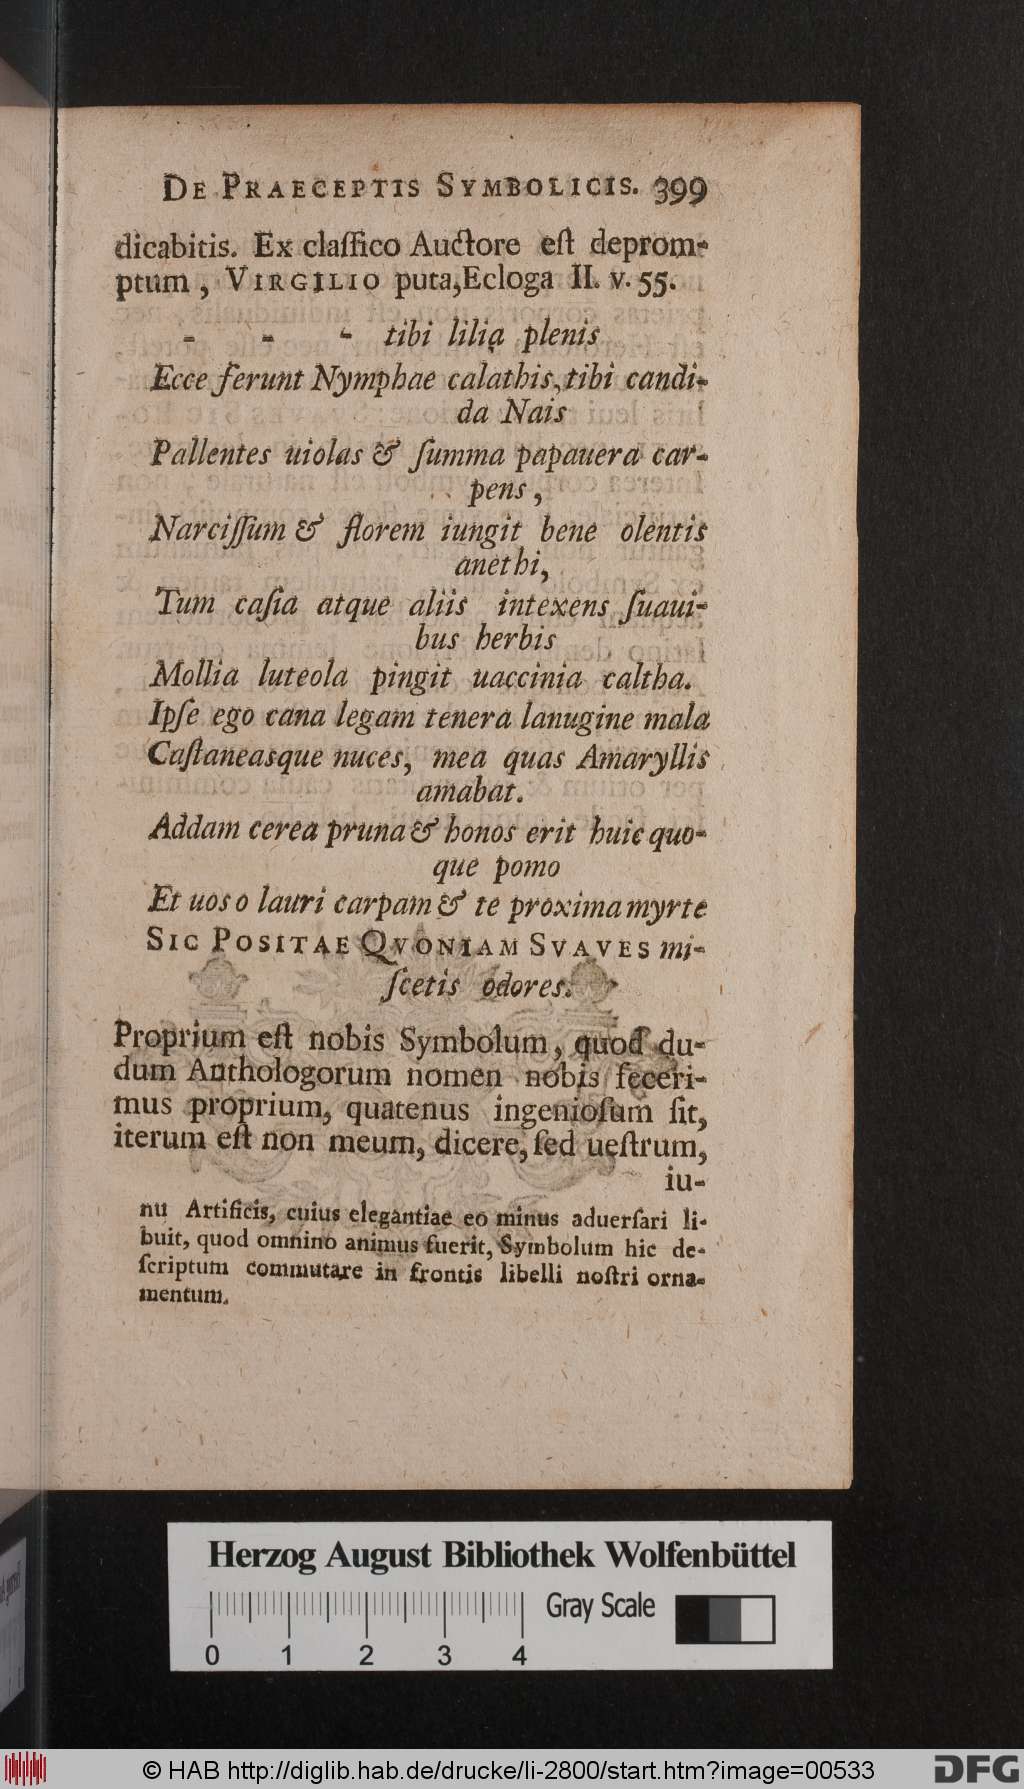 DE PRAECEPTIS SYMBOLICIS. 399
dicabitis. Ex claſſico Auctore eſt deprom-
ptum, VIRGILIO puta, Ecloga II. v. 55.
- - - tibi lilia plenis
Ecce ferunt Nymphae calathis, tibi candi-
da Nais
Pallentes uiolas & ſumma papauera car-
pens,
Narciſſum & florem iungit bene olentis
anethi,
Tum caſia atque aliis intexens ſuaui-
bus herbis
Mollia luteola pingit uaccinia caltha.
Ipſe ego cana legam tenera lanugine mala
Caſtaneasque nuces, mea quas Amaryllis
amabat.
Addam cerea pruna & honos erit huic quo-
que pomo
Et uos o lauri carpam & te proxima myrte
SIC POSITAE QVONIAM SVAVES mi-
ſcetis odores.
Proprium eſt nobis Symbolum, quod du-
dum Anthologorum nomen nobis feceri-
mus proprium, quatenus ingenioſum ſit,
iterum eſt non meum, dicere, ſed ueſtrum,
iu-
nu Artificis, cuius elegantiae eo minus aduerſari li-
buit, quod omnino animus fuerit, Symbolum hic de-
ſcriptum commutare in frontis libelli noſtri orna-
mentum.
Herzog August Bibliothek Wolfenbüttel
Gray Scale
0 1 2 3 4
© HAB http://diglib.hab.de/drucke/li-2800/start.htm?image=00533
DFG